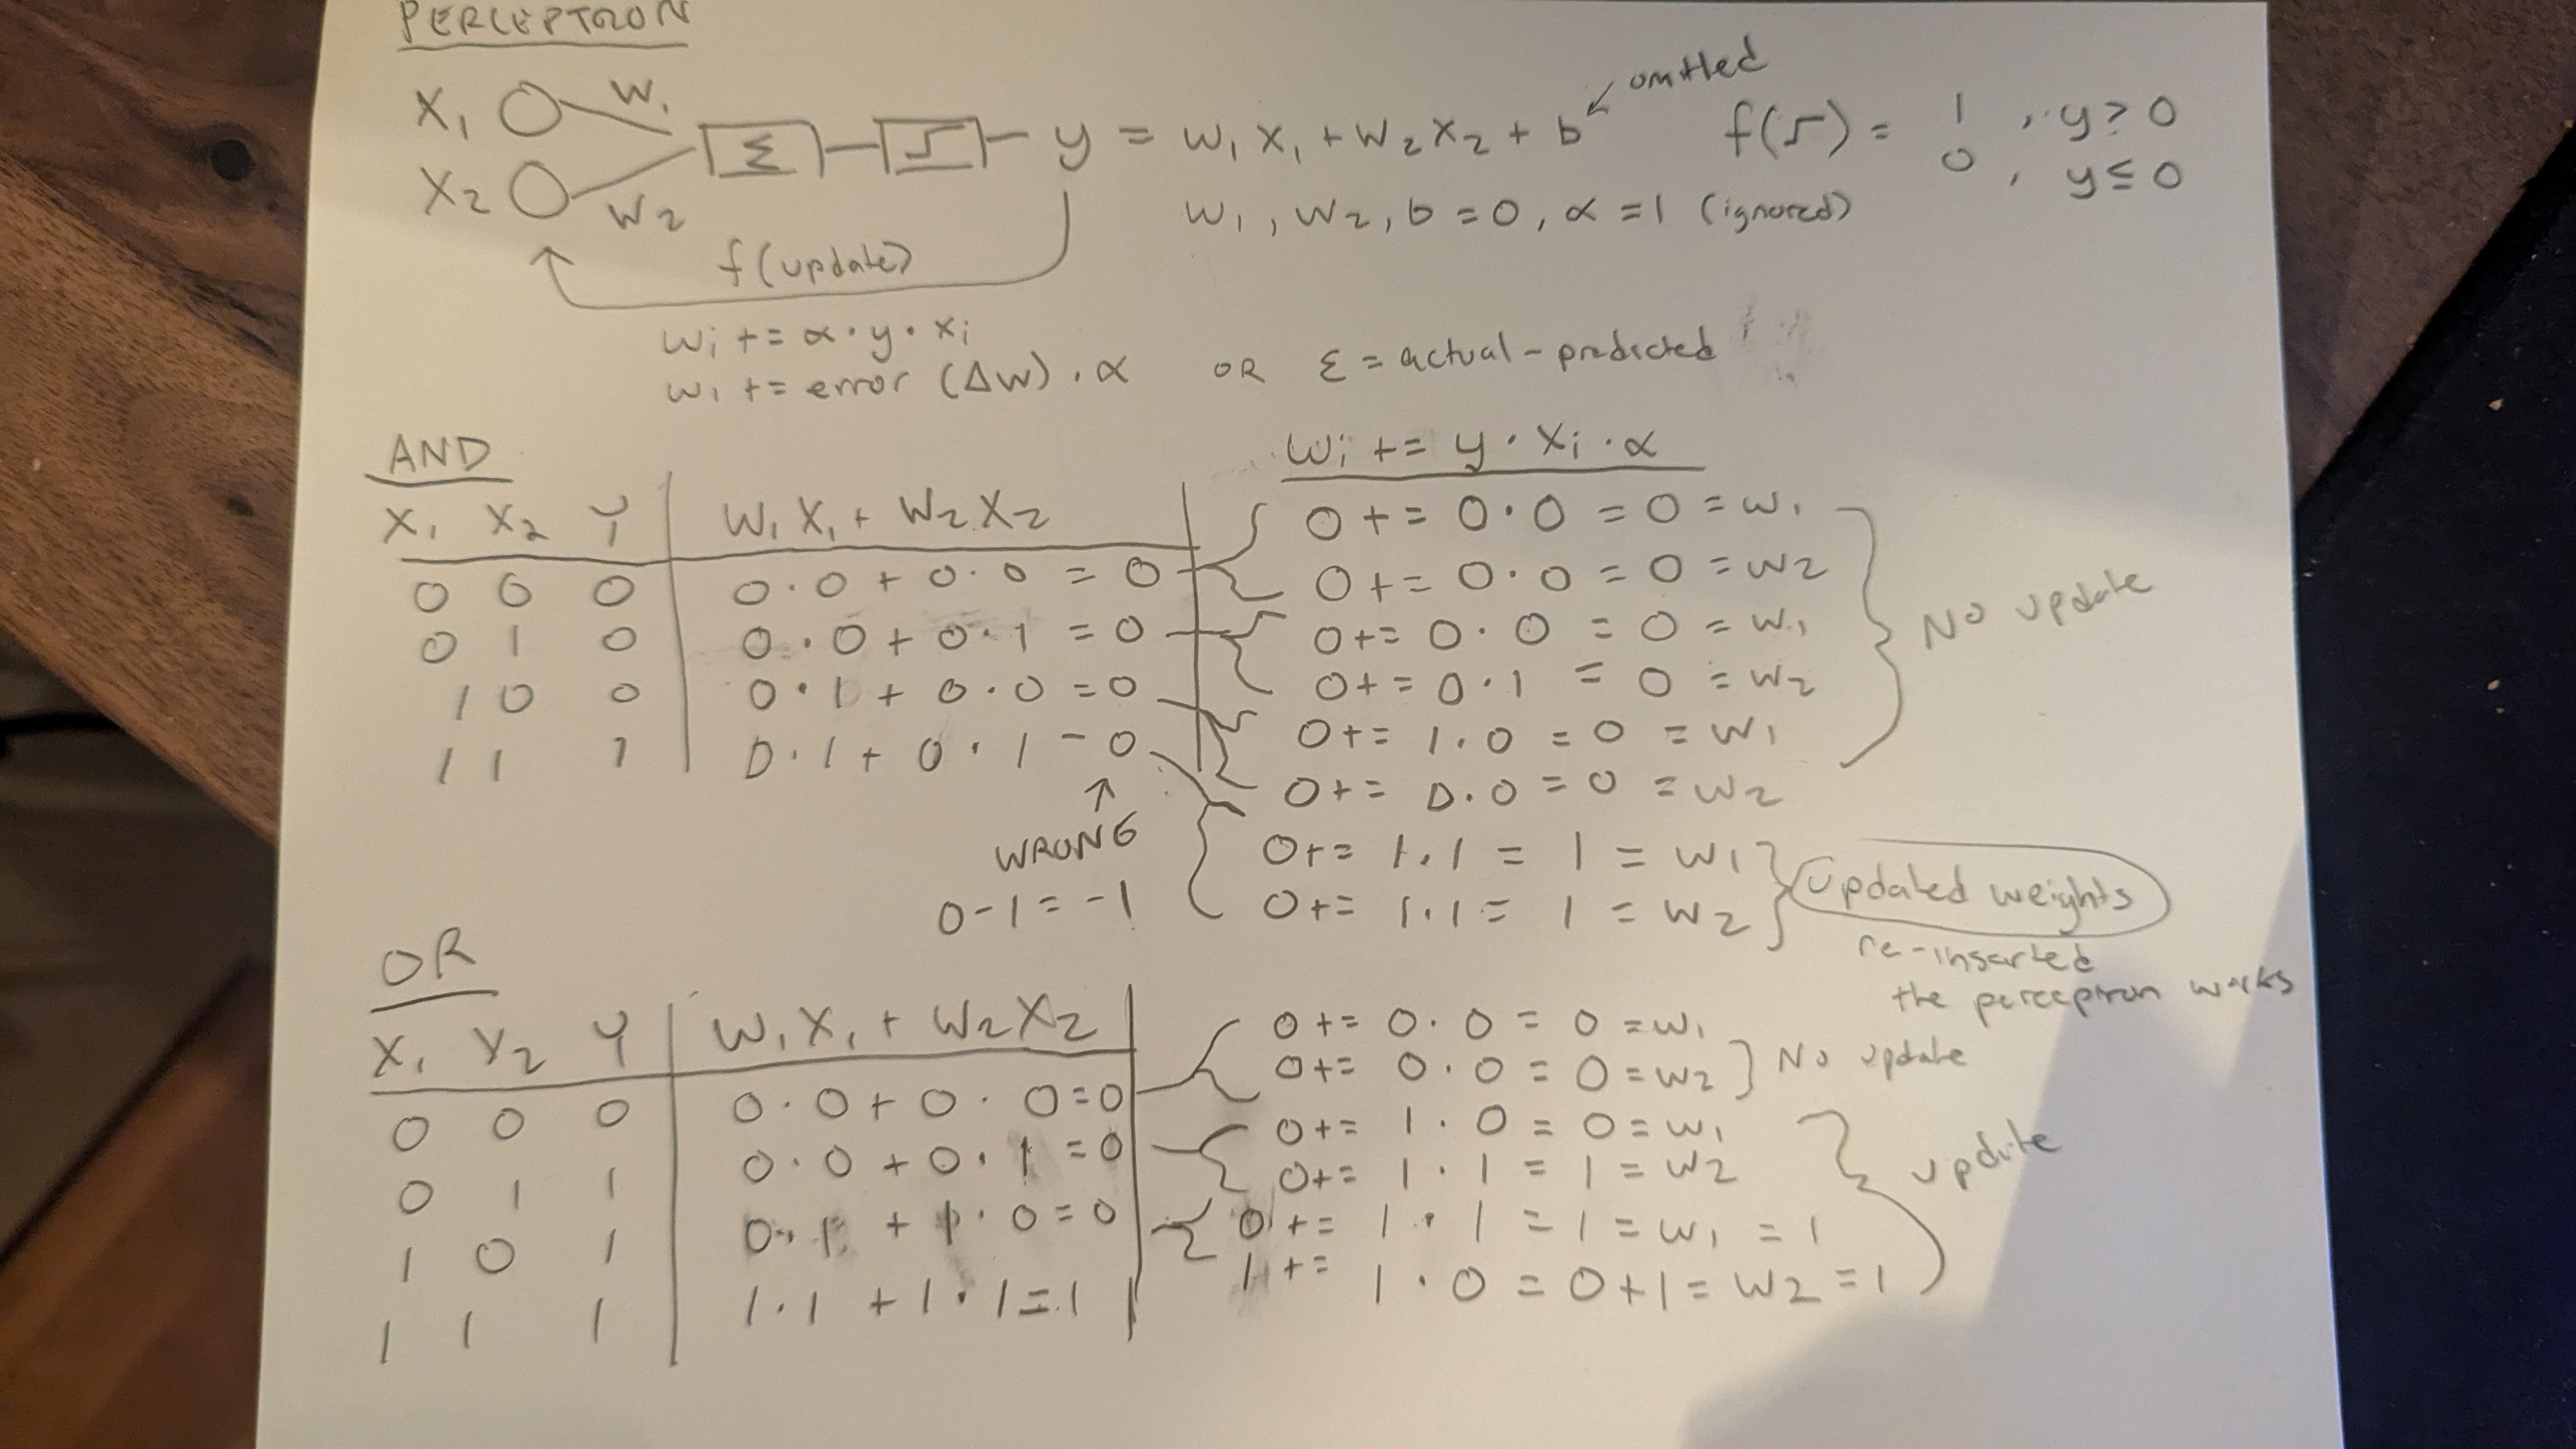 PERCEPTRON
X1 W1
X2 W2
Σ
y = w1 x1 + w2 x2 + b
omitted
f(⎍) = 1 , y > 0
0 , y ≤ 0
w1, w2, b = 0, α = 1 (ignored)
f(update)
wi += α · y · xi
wi += error (Δw) · α OR ε = actual - predicted
AND
wi += y · xi · α
X1 X2 Y W1X1 + W2X2
0 0 0 0·0 + 0·0 = 0
0 1 0 0·0 + 0·1 = 0
1 0 0 0·1 + 0·0 = 0
1 1 1 0·1 + 0·1 = 0
WRONG
0-1 = -1
0 += 0·0 = 0 = w1
0 += 0·0 = 0 = w2
0 += 0·0 = 0 = w1
0 += 0·1 = 0 = w2
0 += 1·0 = 0 = w1
0 += 0·0 = 0 = w2
No update
0 += 1·1 = 1 = w1
0 += 1·1 = 1 = w2
updated weights
re-inserted
the perceptron works
OR
X1 X2 Y W1X1 + W2X2
0 0 0 0·0 + 0·0 = 0
0 1 1 0·0 + 0·1 = 0
1 0 1 0·1 + 1·0 = 0
1 1 1 1·1 + 1·1 = 1
0 += 0·0 = 0 = w1
0 += 0·0 = 0 = w2
No update
0 += 1·0 = 0 = w1
0 += 1·1 = 1 = w2
0 += 1·1 = 1 = w1 = 1
1 += 1·0 = 0+1 = w2 = 1
update